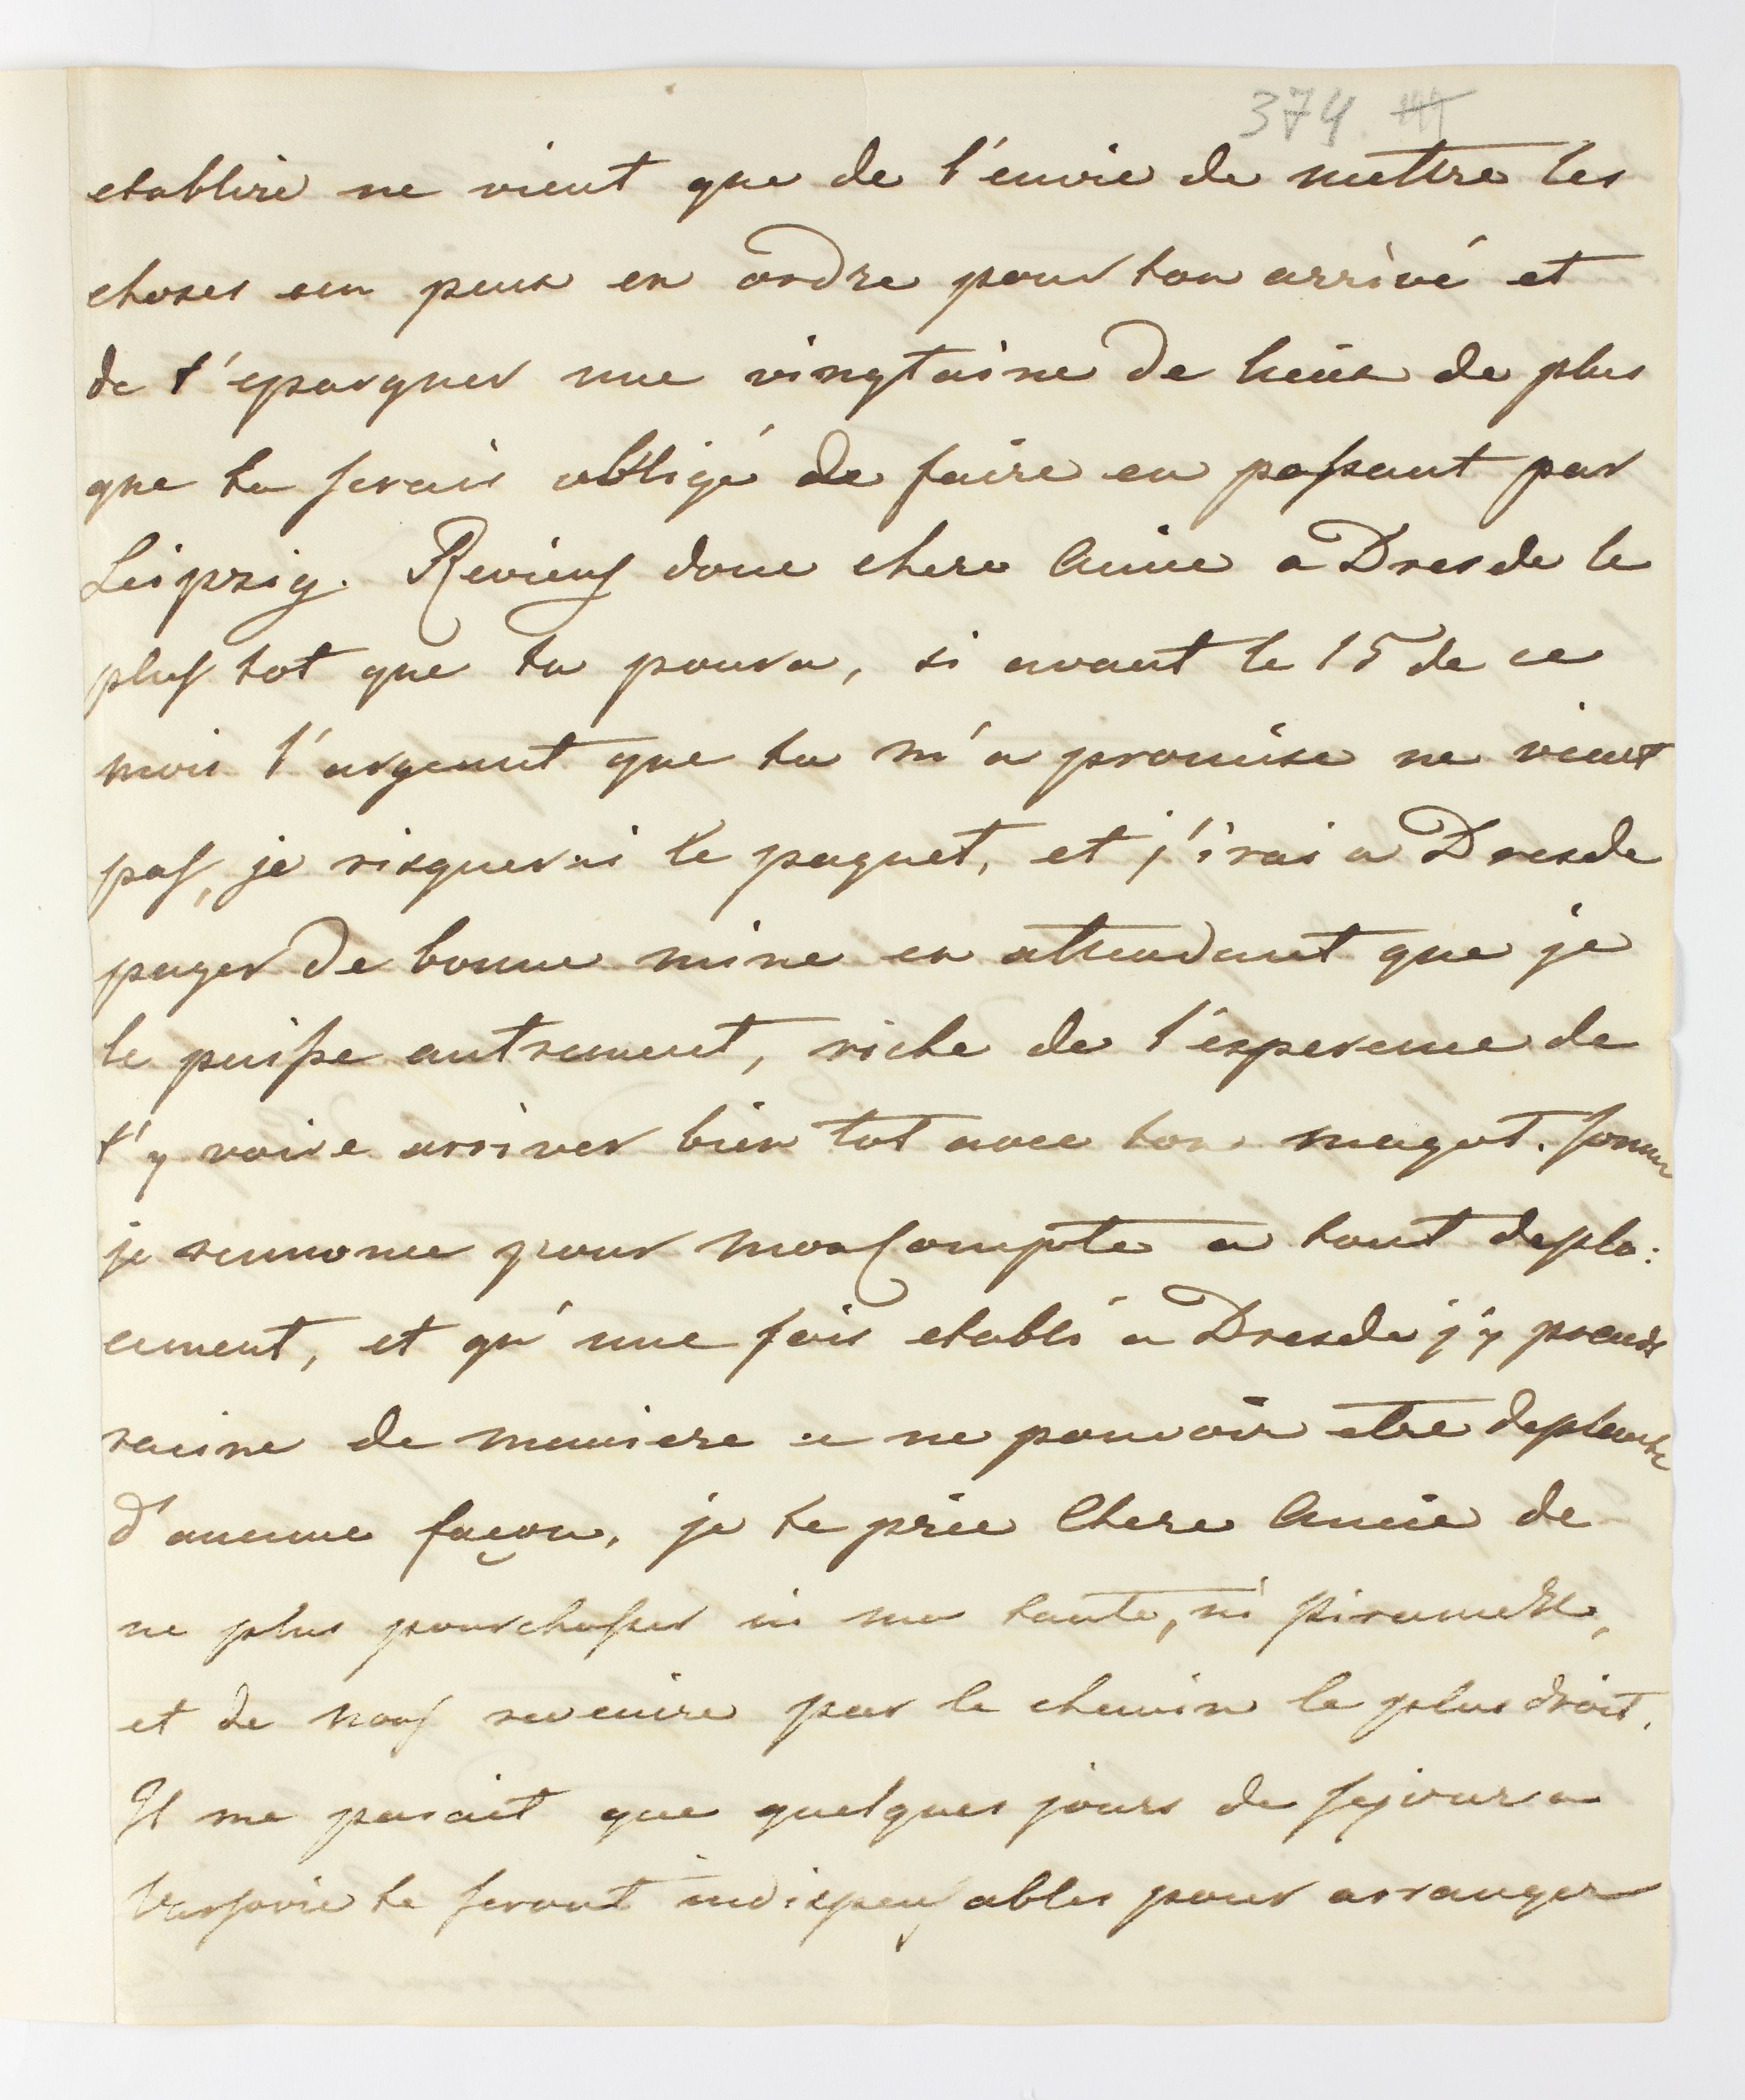 374
etablire ne vient que de l'envie de mettre les
choses un peux en ordre pour ton arrivé et
de t'epargner une vingtaine de lieux de plus
que tu serais obligé de faire en passant par
Leipzig. Reviens donc chere Amie a Dresde le
plus tot que tu poura, si avant le 15 de ce
mois l'argeant que tu m'a promise ne vient
pas, je risquerai le paquet, et j'irai a Dresde
payer de bonne mine en attendant que je
le puisse autrement, riche de l'esperence de
t'y voire arriver bien tot avec ton magot.
je rennonce pour mon Compte a tout depla:
cement, et qu'une fois etabli a Dresde j'y prends
racine de maniere a ne pouvoir etre deplanté
d'aucune façon, je te prie Chere Amie de
ne plus pourchasser ni ma tante, ni
et de nous revenire par le chemin le plus droit.
Il me parait que quelques jours de sejour a
Varsovie te seront indispensables pour arranger